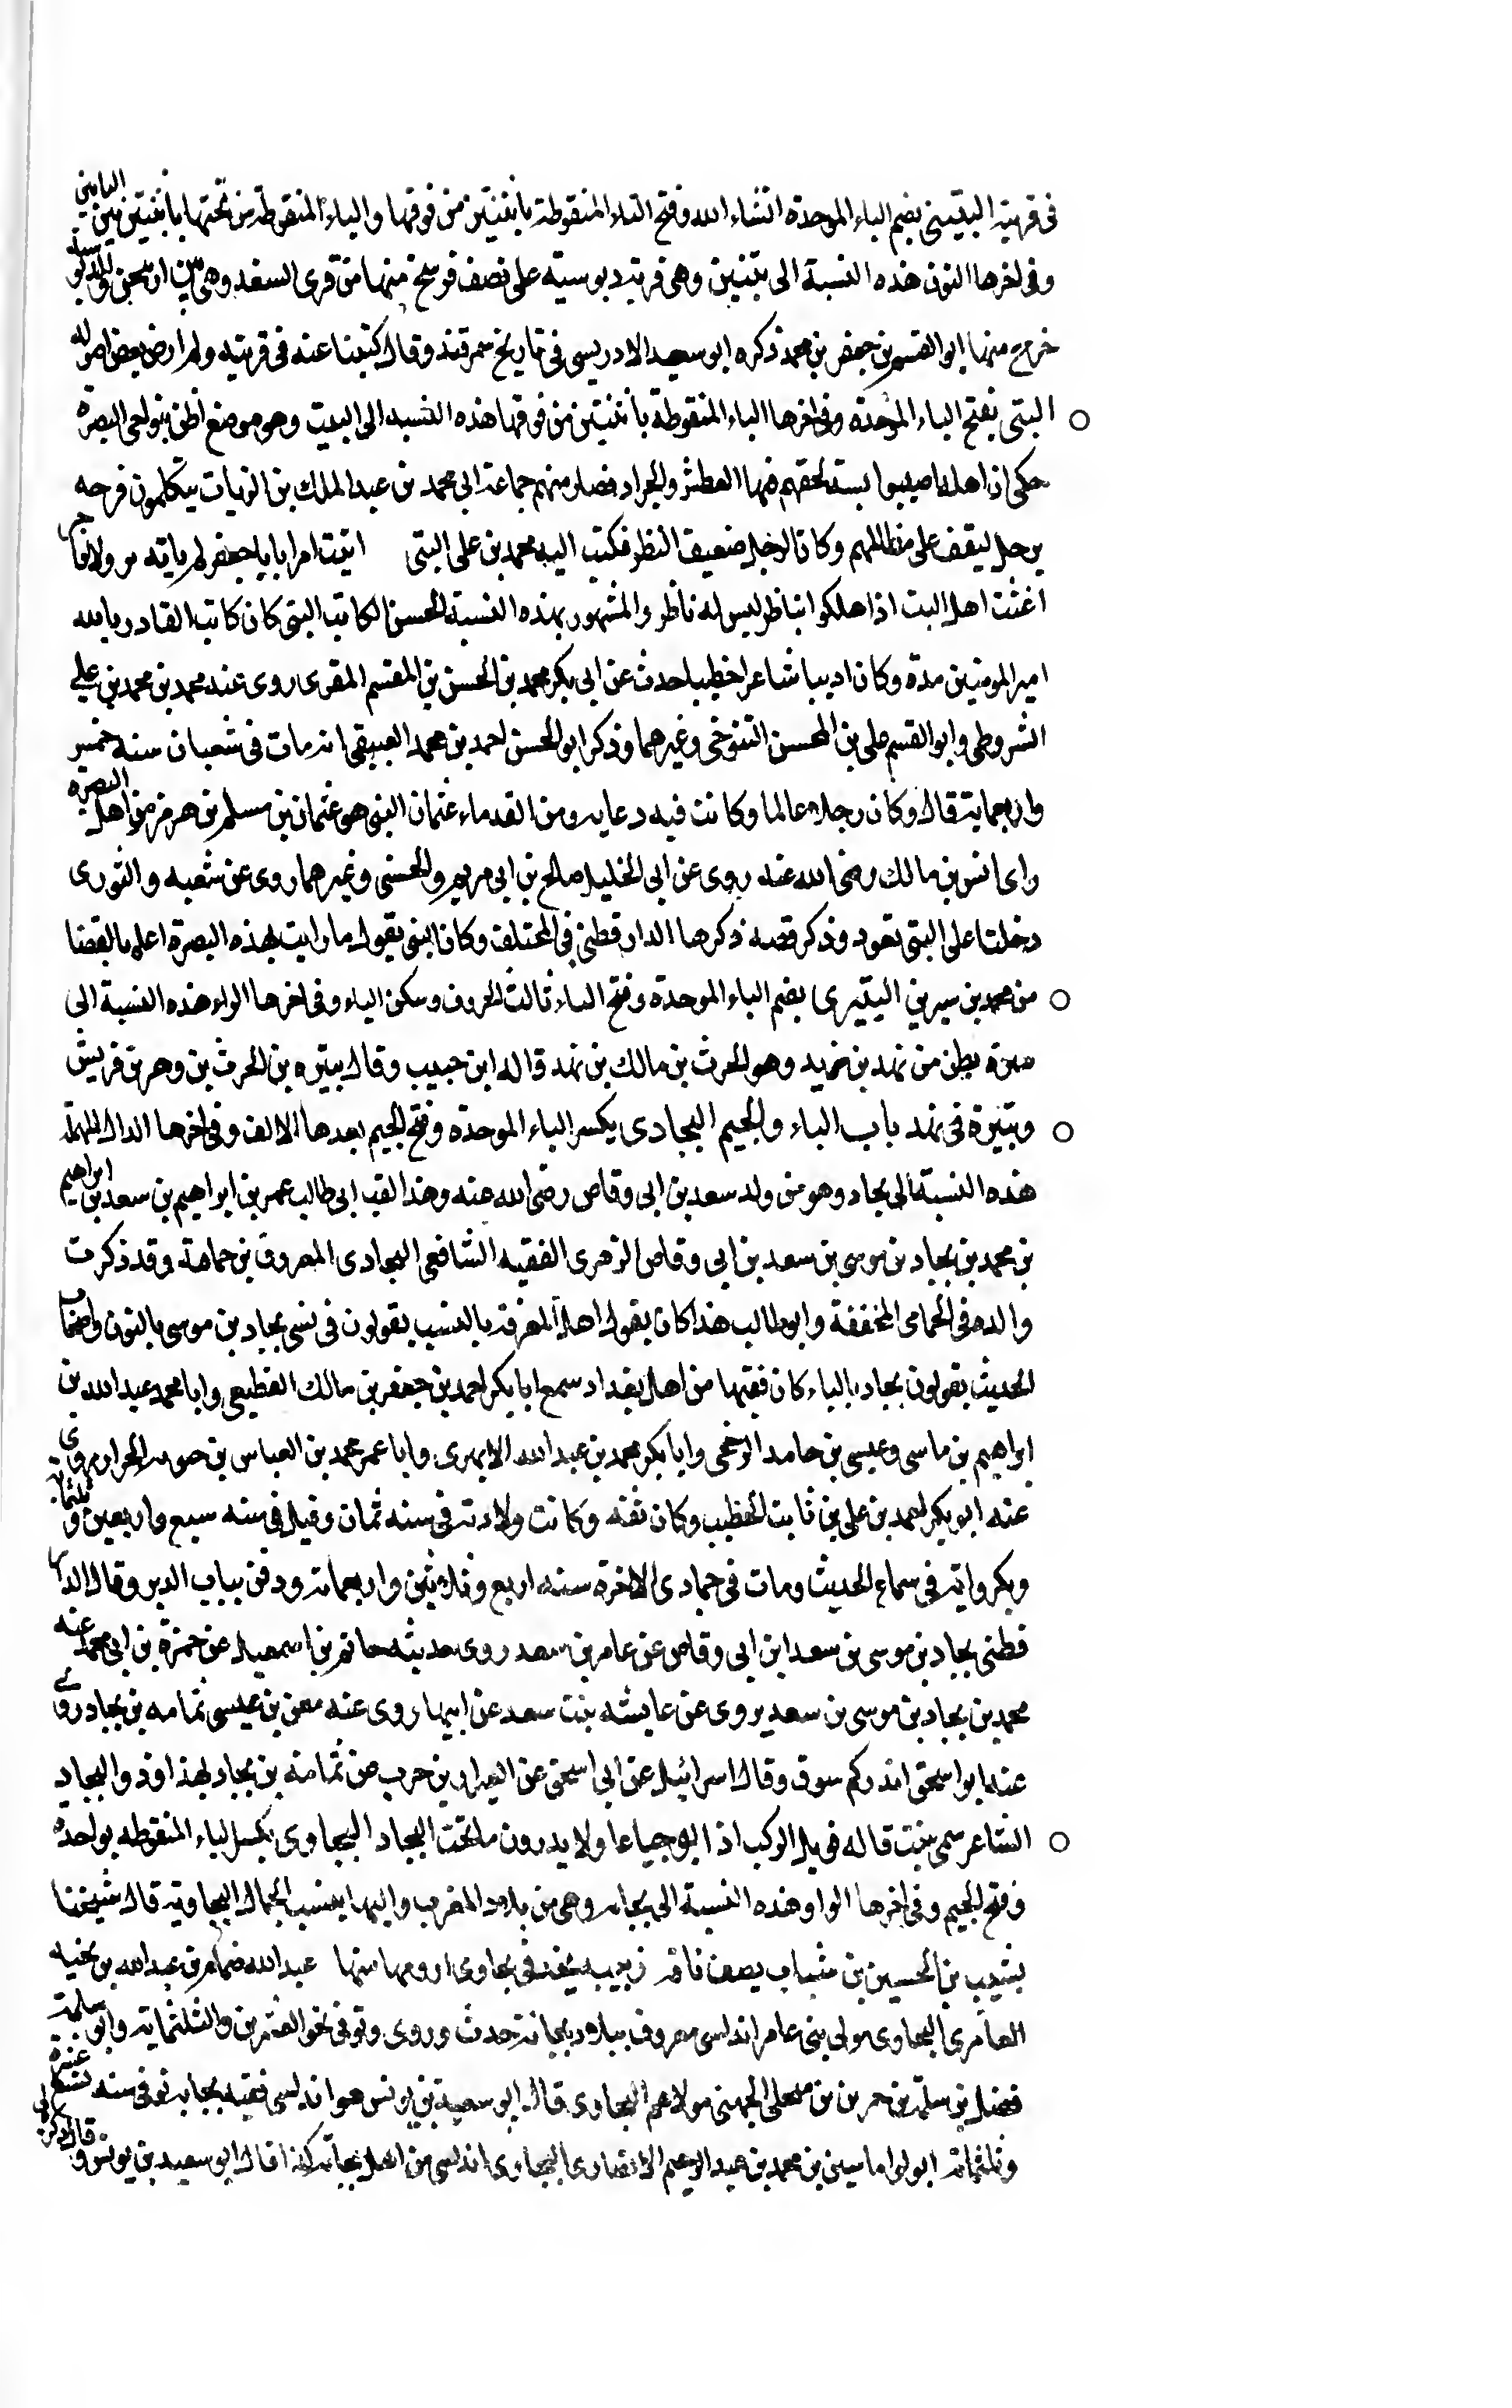 فى قريته البتيتنى بضم الباء الموحدة انشاء الله وفتح التاء المنقوطة باثنتين من فوقها والياء المنقوطة من تحتها باثنتين بين التائين
وفى اخرها النون هذه النسبة الى بتيتن وهى قرية دبوسية على نصف فرسخ منها من قرى السغد وهى بين اربنجن والدبوسية
خرج منها ابو القسم بن جعفر بن محمد ذكره ابو سعيد الادريسى فى تاريخ سمرقند وقال كتبنا عنه فى قريته ولم ارض بعض اصوله
البتى بفتح الباء الموحدة وفى اخرها التاء المنقوطة باثنتين من فوقها هذه النسبة الى البت وهو موضع اظن بنواحى البصرة
حكى ان اهلها اصيبوا بسنة لحقهم فيها العطش والجراد فصار منهم جماعة الى محمد بن عبد الملك بن الزيات يتكلمون فوجه
برجل ليقف على مظالمهم وكان الرجل ضعيف النظر فكتب اليه محمد بن على البتى اتيت امرا يابا جعفر لم ياته بر ولا فاجر
اغثت اهل البت اذ اهلكوا بناظر ليس له ناظر والمشهور بهذه النسبة الحسن الكاتب البتى كان كاتب القادر بالله
امير المومنين مدة وكان اديبا شاعرا خطيبا حدث عن ابى بكر محمد بن الحسن بن المقسم المقرى روى عنه محمد بن محمد بن على
الشروطى وابو القسم على بن المحسن التنوخى وغيرهما وذكر ابو الحسن احمد بن محمد العتيقى انه مات فى شعبان سنة خمس
واربعماية قال وكان رجلا عالما وكانت فيه دعابه ومن القدماء عثمان البتى هو عثمان بن مسلم بن هرمز من اهل البصرة
راى انس بن مالك رضى الله عنه روى عن ابى الخليل صالح بن ابى مريم والحسن وغيرهما روى عن شعبه والثورى
دخلنا على البتى نعود وذكر قصه ذكرها الدارقطنى فى المختلف وكان البتى يقول ما رايت بهذه البصرة اعلم بالقضا
من محمد بن سيرين البتيرى بضم الباء الموحدة وفتح التاء ثالث الحروف وسكون الياء وفى اخرها الراء هذه النسبة الى
بتيرة بطن من نهد بن زيد وهو الحرث بن مالك بن نهد قاله ابن حبيب وقال بتيره بن الحرث بن وهر بن قريش
وبتيرة فى نهد باب الباء والجيم البجادى بكسر الباء الموحدة وفتح الجيم بعدها الالف وفى اخرها الدال المهملة
هذه النسبة الى بجاد وهو من ولد سعد بن ابى وقاص رضى الله عنه وهذا لقب ابى طالب عمر بن ابراهيم بن سعد بن ابراهيم
بن محمد بن بجاد بن موسى بن سعد بن ابى وقاص الزهرى الفقيه الشافعى البجادى المعروف بن حمامة وقد ذكرت
والده فى الحمامى المخففة وابو طالب هذا كان يقول اهل المعرفة بالنسب يقولون فى نسبى نجاد بن موسى بالنون واصحاب
الحديث يقولون بجاد بالباء كان فقيها من اهل بغداد سمع ابا بكر احمد بن جعفر بن مالك القطيعى وابا محمد عبد الله بن
ابراهيم بن ماسى وعيسى بن حامد الرخجى وابا بكر محمد بن عبد الله الابهرى وابا عمر محمد بن العباس بن حيويه الخزاز روى
عنه ابو بكر احمد بن على بن ثابت الخطيب وكان ثقه وكانت ولادته فى سنه ثمان وقيل فى سنه سبع واربعين وثلثماية
وبكر واتيه فى سماع الحديث ومات فى جمادى الاخرة سنه اربع وثلاثين واربعمائه ودفن بباب الدير وقال الدار
قطنى بجاد بن موسى بن سعد ابن ابى وقاص عن عامر بن سعد روى حديثه حاتم بن اسمعيل عن حمزة بن ابى محمد عنه
محمد بن بجاد بن موسى بن سعد يروى عن عايشه بنت سعد عن ابيها روى عنه معن بن عيسى ثمامه بن بجاد روى
عنه ابو اسحق انذركم سوف وقال اسرائيل عن ابى اسحق عن العيزار بن حرب عن ثمامه بن بجاد بهذا وذو البجاد
الشاعر سمى ببيت قاله فويل الركب اذ ابوا جياعا ولا يدرون ما تحت البجاد البجاوى بكسر الباء المنقوطه بواحده
وفتح الجيم وفى اخرها الواو هذه النسبة الى بجايه وهى من بلاد المغرب واليها ينسب الجمال البجاوية قال شيخنا
بن الحسين بن شباب يصف ناقه بجاوى منها عبد الله ضمام بن عبد الله بن نجيه
العامرى البجاوى مولى بنى عامر اندلسى معروف ببلاد بجانة حدث وروى وتوفى نحو العشرين والثلثماية وابو سلمة
فضل بن سلمة بن حريز بن منخل الجهنى مولاهم البجاوى قال ابو سعيد بن يونس هو اندلسى فقيه بجايه توفى سنه تسع عشرة
وثلثمائه ابو لواما سيسن بن محمد بن عبد الرحيم الانصارى البجاوى اندلسى من اهل بجانة كذا قال ابو سعيد بن يونس وقال ذكره لى